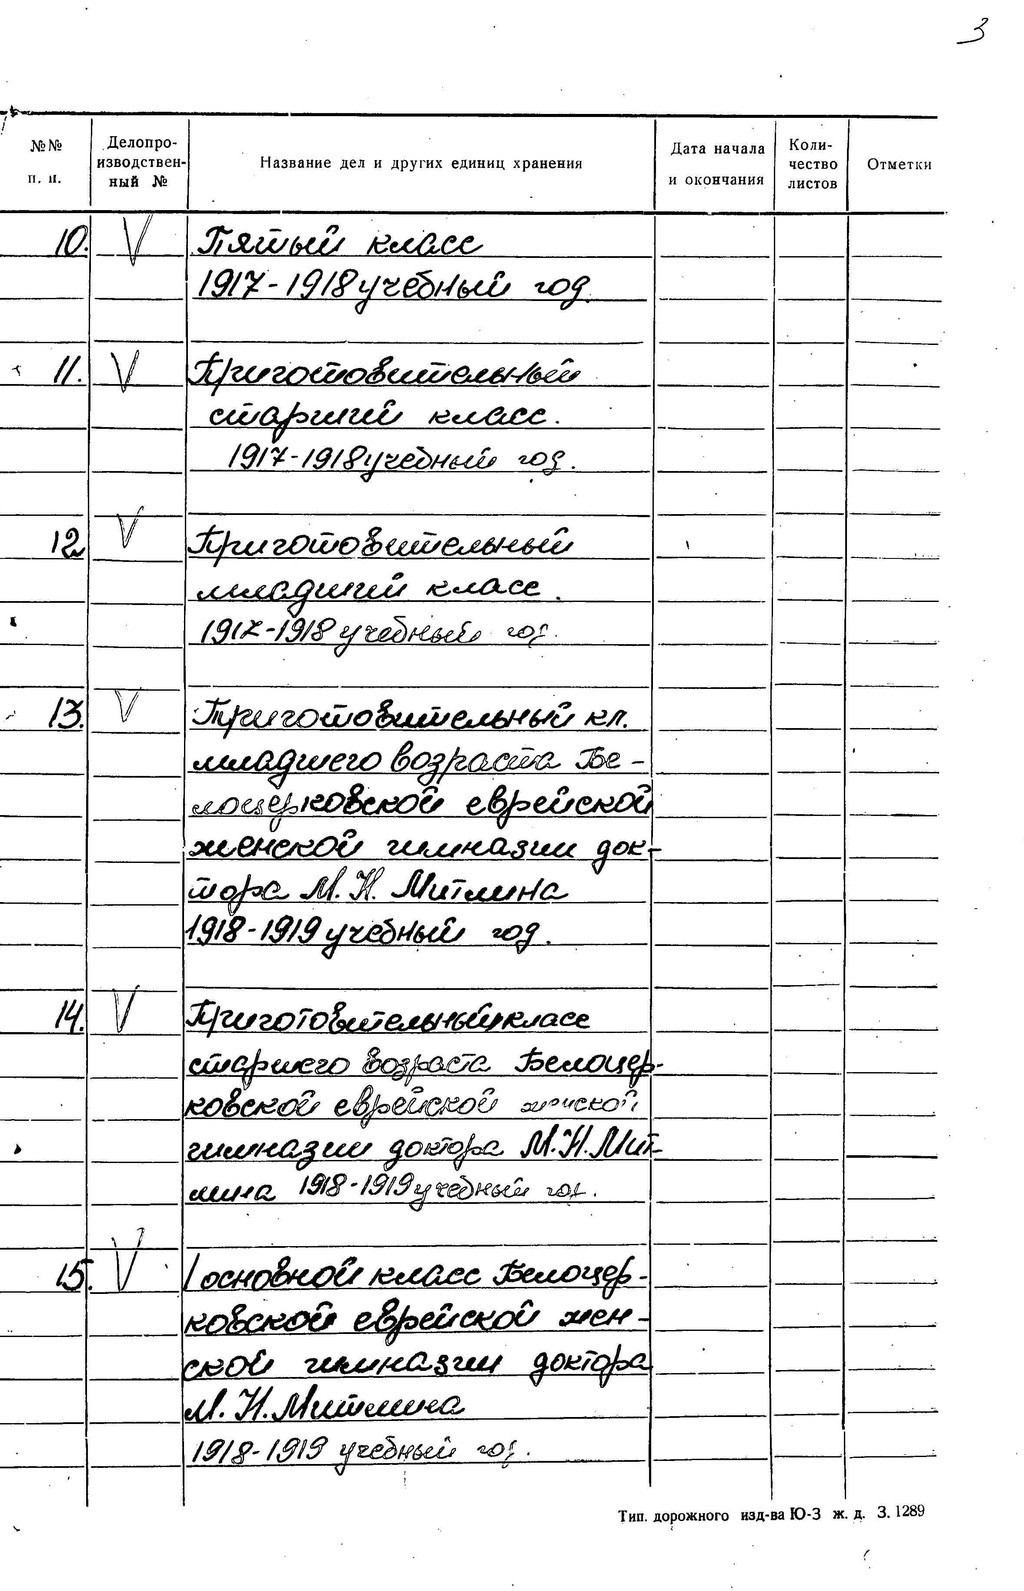 3
№№ п. п.
Делопроизводственный №
Название дел и других единиц хранения
Дата начала и окончания
Количество листов
Отметки
10. V Пятый класс
1917-1918 учебный год.
11. V Приготовительный
старший класс.
1917-1918 учебный год.
12 V Приготовительный
младший класс.
1917-1918 учебный год.
13. V Приготовительный кл.
младшего возраста Бе-
лоцерковской еврейской
женской гимназии док-
тора М. Н. Митлина
1918-1919 учебный год.
14. V Приготовительный класс
старшего возраста Белоцер-
ковской еврейской женской
гимназии доктора М. Н. Мит-
лина 1918-1919 учебный год.
15. V I основной класс Белоцер-
ковской еврейской жен-
ской гимназии доктора
М. Н. Митлина
1918-1919 учебный год.
Тип. дорожного изд-ва Ю-З ж. д. З. 1289